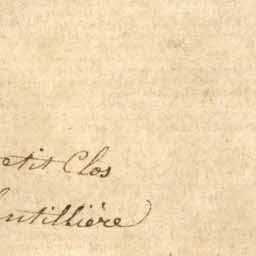 etit Clos
entillière